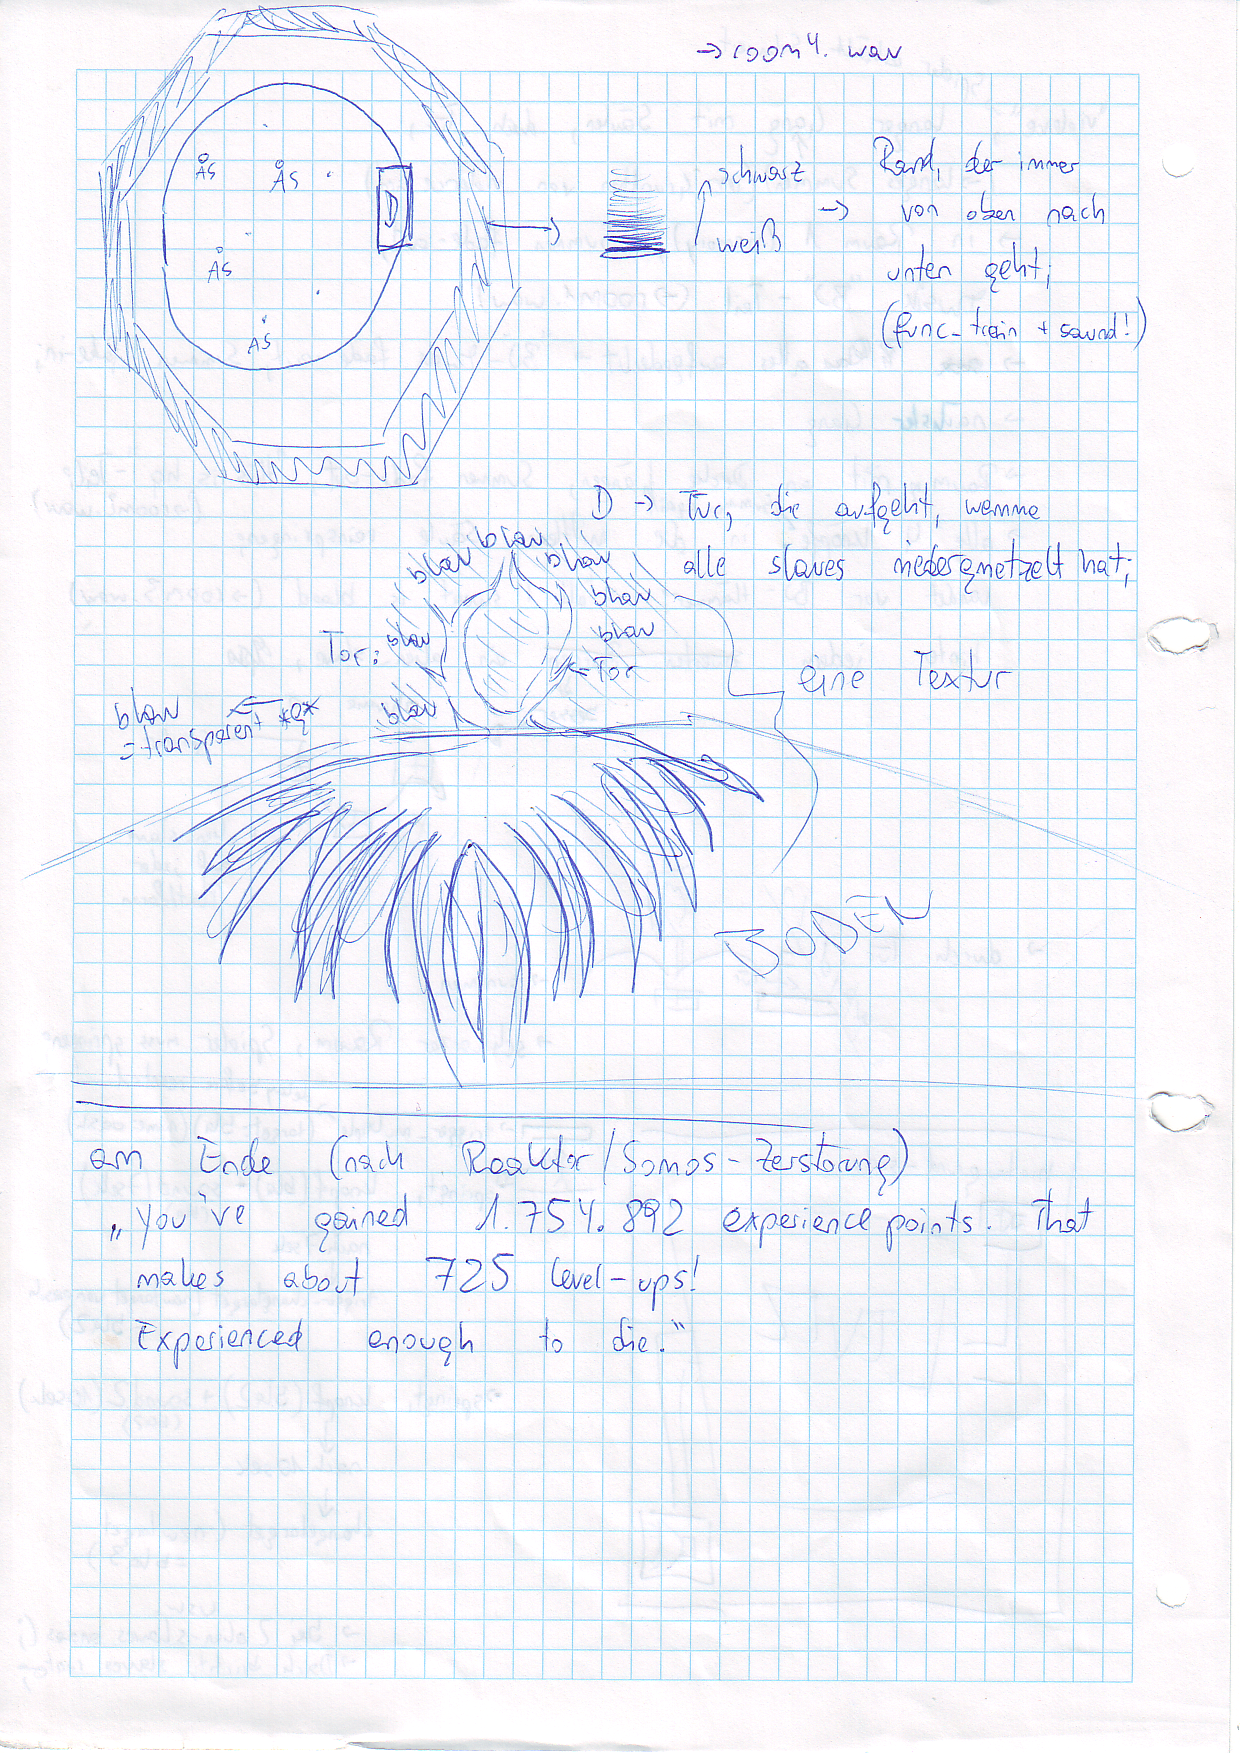 → room4.wav
ÅS
ÅS
ÅS
ÅS
D
schwarz
weiß
→
Rand, der immer
von oben nach
unten geht;
(func_train + sound!)
D → Tür, die aufgeht, wemma
alle slaves niedergmetzelt hat;
blau
blau
blau
blau
blau
blau
blau
Tor:
← Tor
eine Textur
blau ←
= transparent
BODEN
am Ende (nach Reaktor/Somos-Zerstörung)
„You've gained 1.754.892 experience points. That
makes about 725 level-ups!
Experienced enough to die."